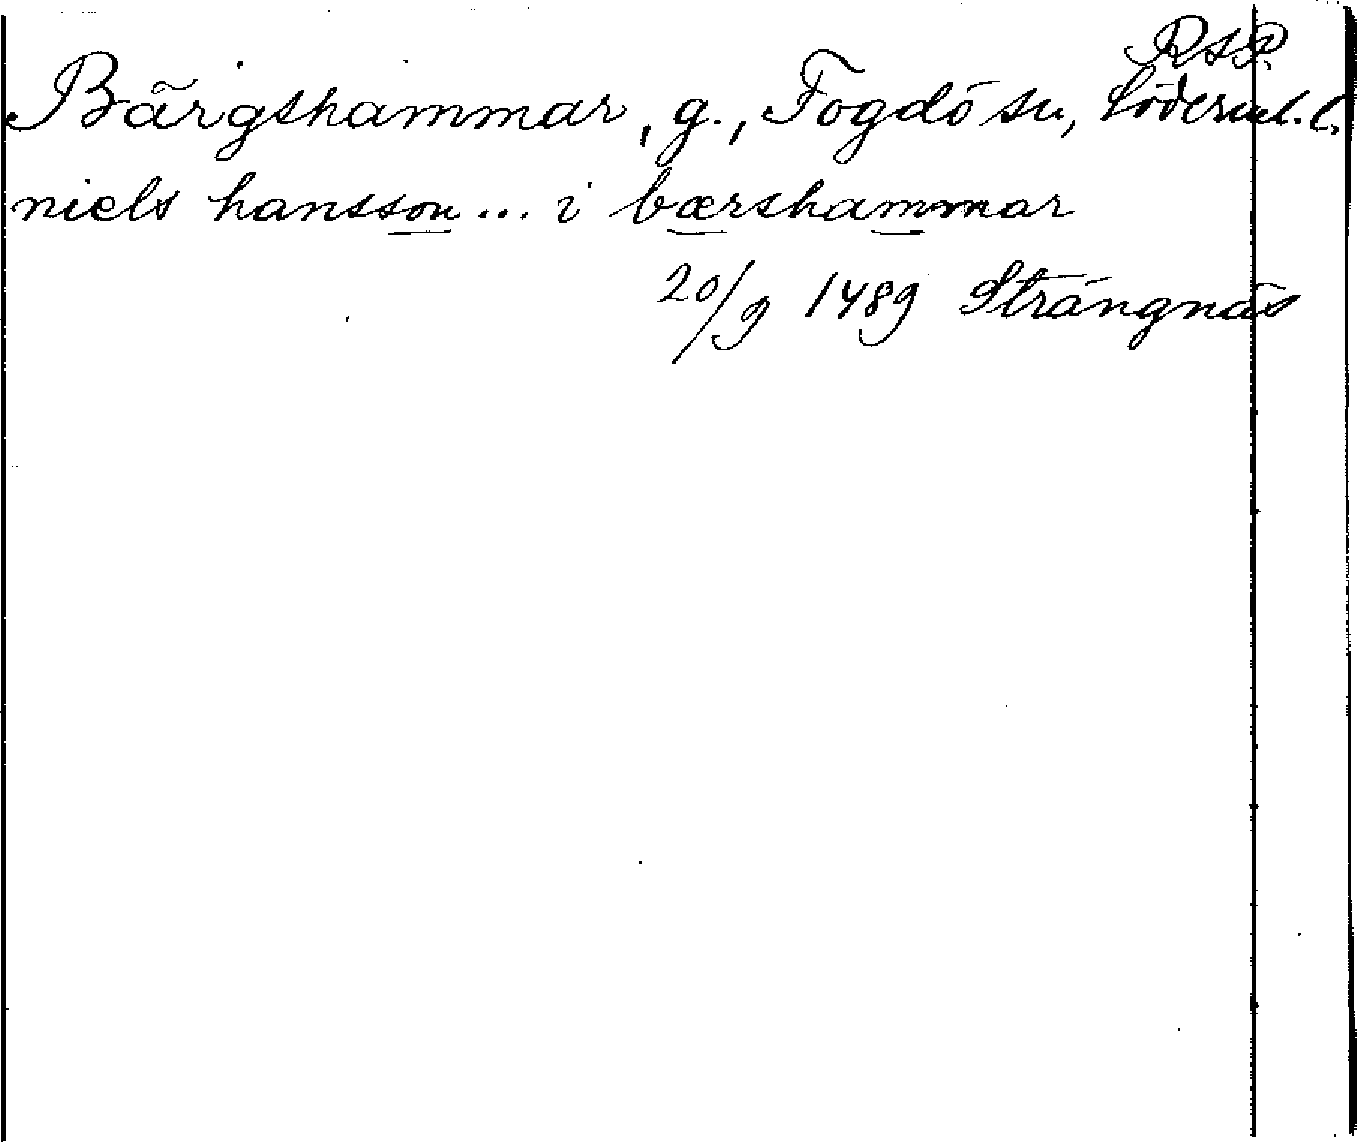 RAP.
Bärgshammar, g., Fogdö sn, Söderml. l.
niels hansson ... i bærshammar
20/9 1489 Strängnäs